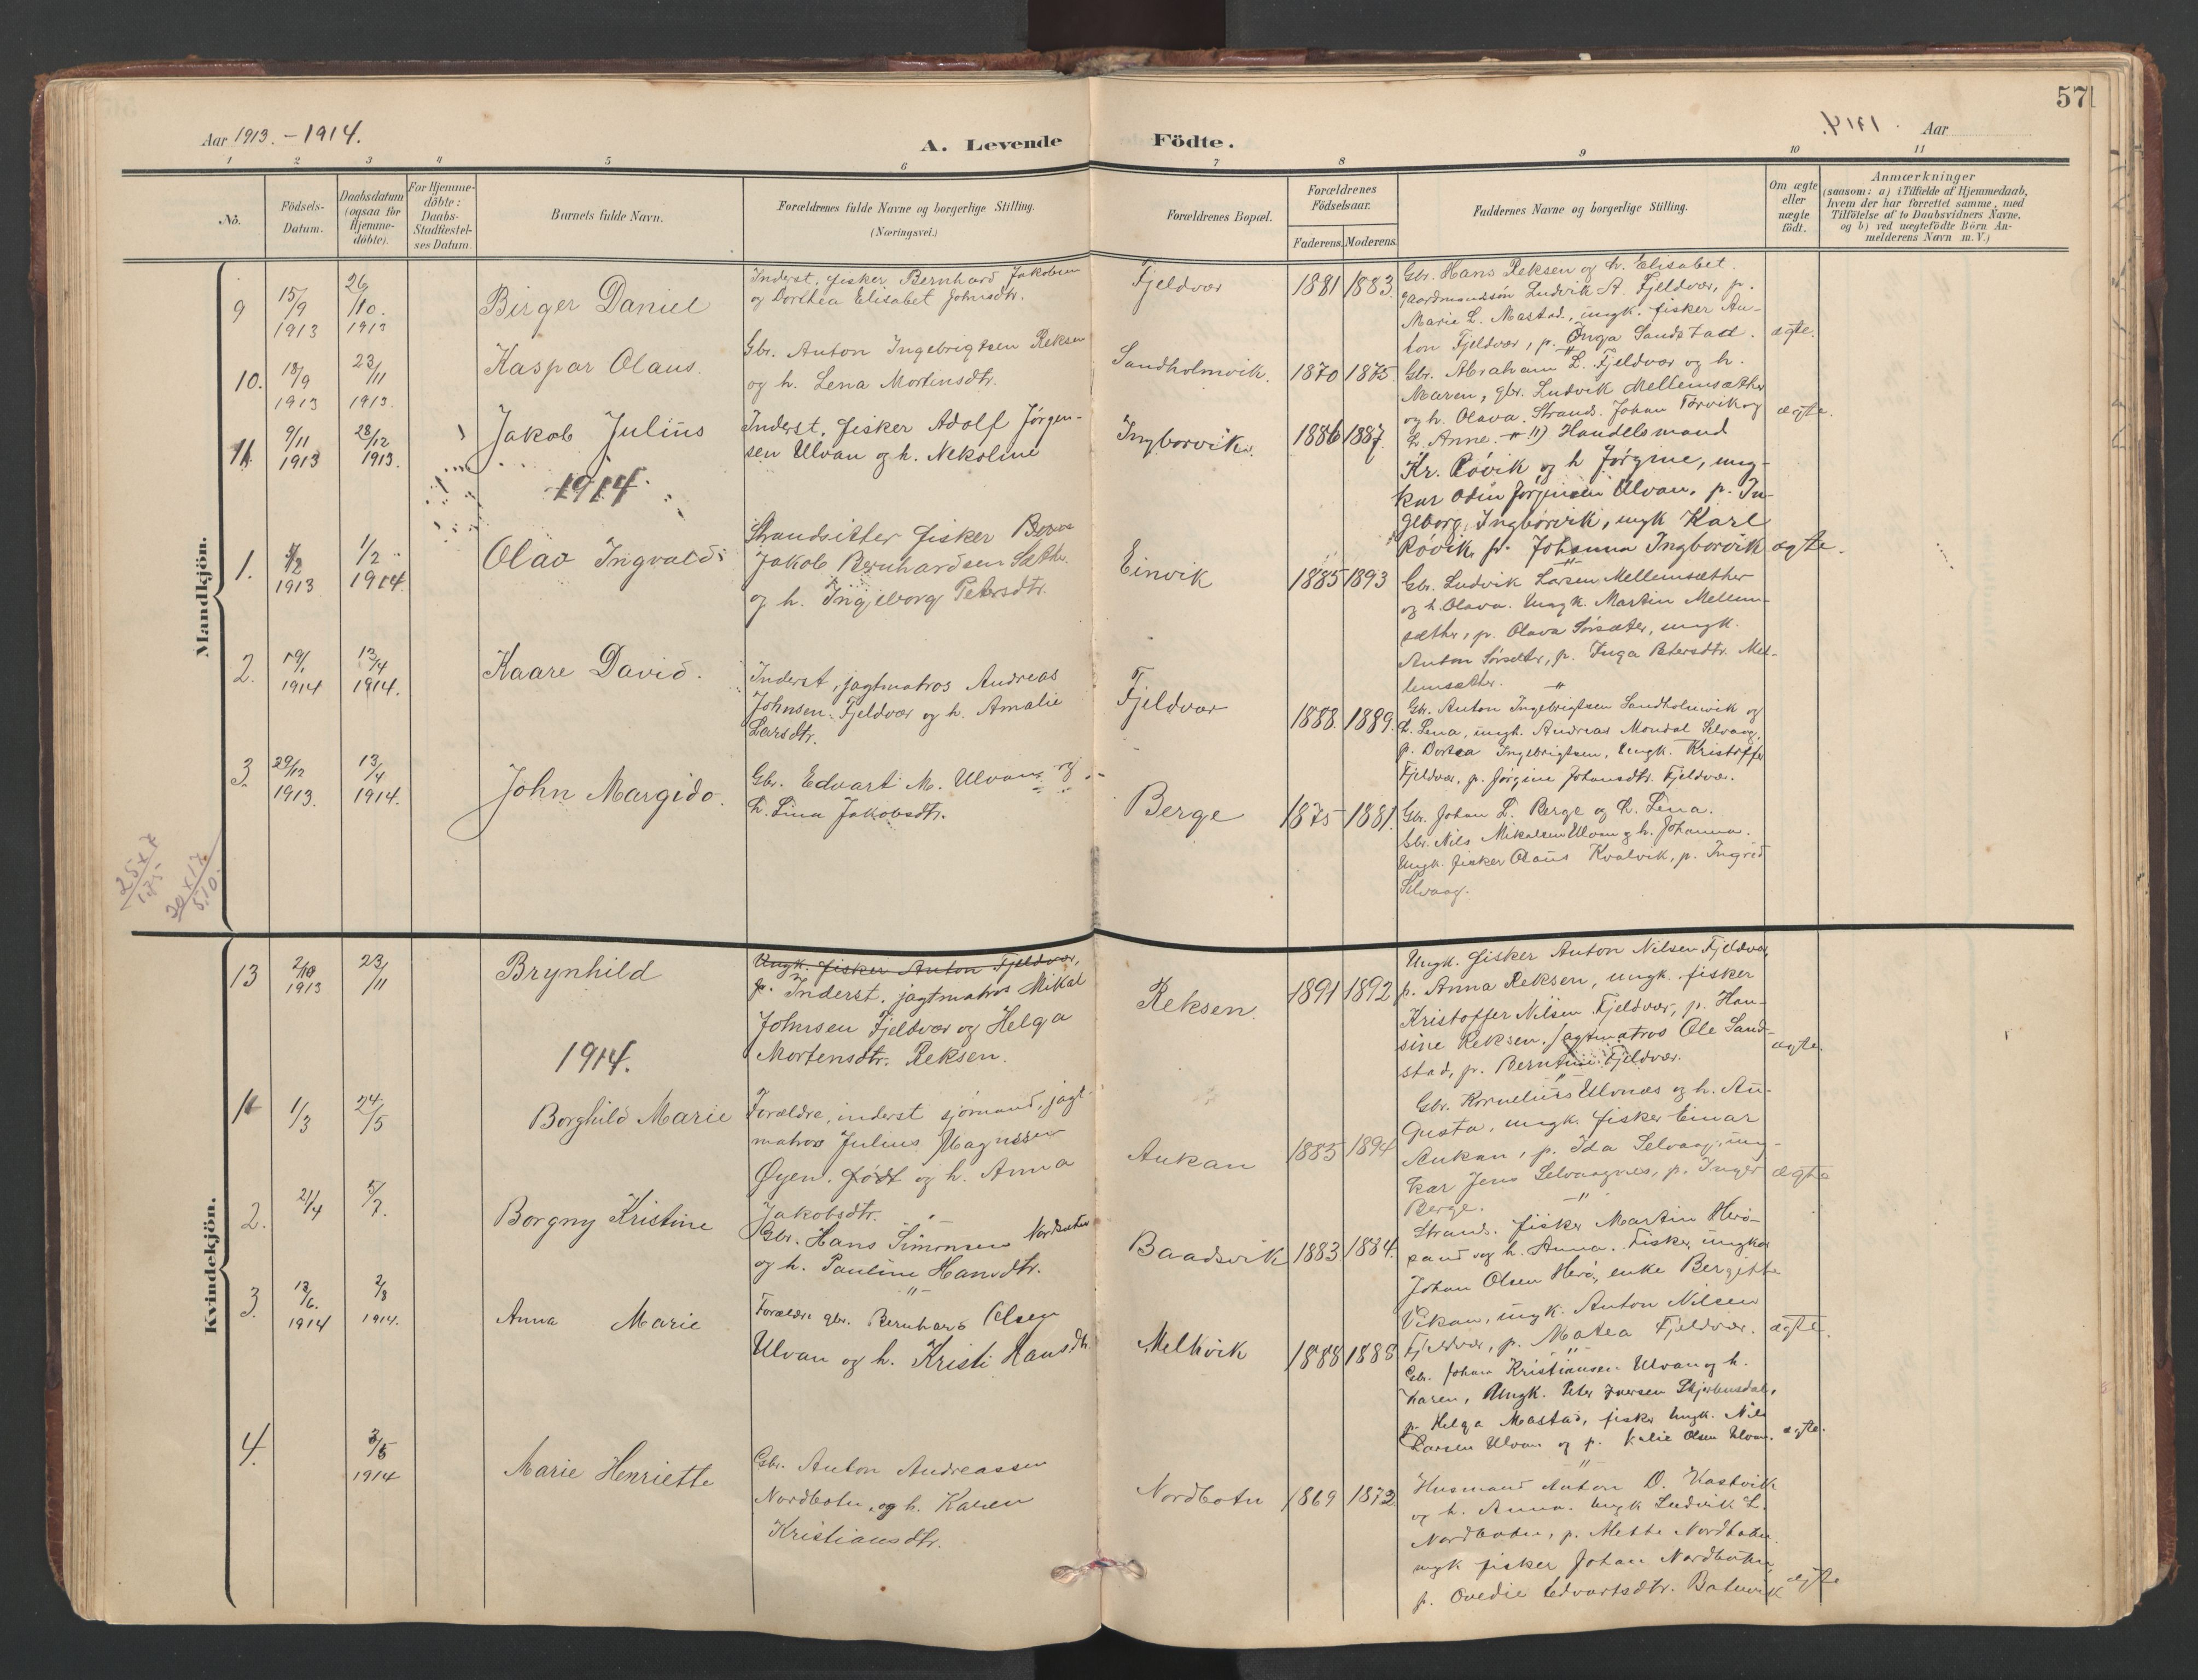 57
Aar 1913. - 1914.
A. Levende Födte.
1914. Aar
1 2 3 4 5 6 7 8 9 10 11
No.
Födsels-
Datum.
Daabsdatum
(ogsaa for
Hjemme-
döbte).
For Hjemme-
döbte:
Daabs-
Stadfæstel-
ses Datum.
Barnets fulde Navn.
Forældrenes fulde Navne og borgerlige Stilling.
(Næringsvei.)
Forældrenes Bopæl.
Forældrenes
Födselsaar.
Faderens. Moderens.
Faddernes Navne og borgerlige Stilling.
Om ægte
eller
uægte
födt.
Anmærkninger
(saasom: a) i Tilfælde af Hjemmedaab,
hvem der har forrettet samme, med
Tilföielse af to Daabsvidners Navne.
og b) ved uægtefödte Börn An-
melderens Navn m. V.)
Mandkjön.
9
15/9
1913
26/10.
1913
Birger Daniel
Inderst, fisker Bernhard Jakobsen
og Dorthea Elisabet Johnsdtr.
Fjeldvær
1881 1883.
Gbr. Hans Reksen og h. Elisabet.
gaardmandssøn Ludvik A. Fjeldvær, p.
Marie L. Mastad, ungk. fisker An-
ton Fjeldvær, p. Inga Sandstad.
ægte.
10.
18/9
1913
23/11
1913.
Kaspar Olaus.
Gbr. Anton Ingebrigtsen Reksen
og h. Lena Mortensdtr.
Sandholmvik.
1870 1875.
Gbr. Abraham L. Fjeldvær og h.
Maren, gbr. Ludvik Mellemsæther
og h. Olava. Strands. Johan Torvik og
h. Anne.
ægte.
11.
9/11
1913
28/12
1913.
Jakob Julius
Inderst, fisker Adolf Jørgen-
sen Ulvan og h. Nekoline
Ingborvik.
1886 1887.
11) Handelsmand
Kr. Røvik og h Jørgine, ung-
kar Odin Jørginsen Ulvan, p. In-
geborg Ingborvik, ungk Karl
Røvik, p. Johanna Ingborvik
ægte.
1914.
1.
1913
1/2
1914.
Olav Ingvald
Strandsitter fisker
Jakob Bernhardsen Sæthr.
og h. Ingjeborg Petersdtr.
Einvik
1885 1893
Gbr. Ludvik Larsen Mellemsæther
og h. Olava. Ungk. Martin Mellem-
sæther, p. Olava Sørsæter, ungk.
Anton Sørsæter, p. Inga Petersdtr. Mel-
lemsæther.
2.
19/1
1914
13/4
1914.
Kaare David.
Inderst, jagtmatros Andreas
Johnsen Fjeldvær og h. Amalie
Larsdtr.
Fjeldvær
1888. 1889.
Gbr. Anton Ingebrigtsen Sandholmvik og
h. Lena, ungk. Andreas Mondal Selvaag,
p. Dortea Ingebrigtsen, Ungk. Kristoffer
Fjeldvær, p. Jørgine Johansdtr. Fjeldvær.
3.
29/12
1913.
13/4
1914.
John Margido.
Gbr. Edvart M. Ulvan og
h. Lina Jakobsdtr.
Berge
1875 1881.
Gbr. Johan L. Berge og h. Lena.
Gbr. Nils Mikalsen Ulvan og h. Johanna.
Ungk. fisker Olaus Kvalvik, p. Ingrid
Selvaag.
25 x 7
175
30 x 17
510.
Kvindekjön.
13
2/10
1913
23/11
Brynhild
Ungk. fisker Anton Fjeldvær,
p. Inderst, jagtmatros Mikal
Johnsen Fjeldvær og Helga
Mortensdtr. Reksen.
Reksen.
1891 1892
Ungk. fisker Anton Nilsen Fjeldvær,
p. Anna Reksen, ungk. fisker
Kristoffer Nilsen Fjeldvær, p. Han-
sine Reksen, jagtmatros Ole Sand-
stad, p. Berntine Fjeldvær.
ægte.
1914.
1
1/3
24/5
Borghild Marie
Forældre, inderst sjømand, jagt-
matros Julius Magnussen
Øyen. født og h. Anna
Jakobsdtr.
Aukan
1885 1894
Gbr. Kornelius Ulvnes og h. Au-
gusta, ungk. fisker Einar
Aukan, p. Ida Selvaag, ung-
kar Jens Selvaagnes, p. Inger
Berge.
ægte
2.
21/4
5/7.
Borgny Kristine
Gbr. Hans Simonsen Nordbotn
og h. Pauline Hansdtr.
Baadsvik
1883 1884.
Strands. fisker Martin Herø-
sand og h. Anna. Fisker, ungkar
Johan Olsen Herø, enke Bergitte
Vikan, ungk. Anton Nilsen
Fjeldvær, p. Matea Fjeldvær.
ægte.
3.
13/6.
1914
2/8
1914.
Anna Marie
Forældre gbr. Bernhard Olsen
Ulvan og h. Kristi Hansdtr.
Melkvik
1888 1888
Gbr. Johan Kristiansen Ulvan og h.
Karen, Ungk. Peter Iversen Skjærbusdal,
p. Helga Mastad, fisker Ungk. Nils
Larsen Ulvan og p. Kalie Olsen Ulvan.
ægte.
4.
3/5
1914
Marie Henriette
Gbr. Anton Andreassen
Nordbotn, og h. Karen
Kristiansdtr.
Nordbotn
1869 1872
Husmand Anton O. Kastvik
og h. Anna. Ungk Ludvik L.
Nordbotn, p. Mette Nordbotn
ungk fisker Johan Nordbotn,
p. Ovedie Edvartsdtr. Batnvik
ægte